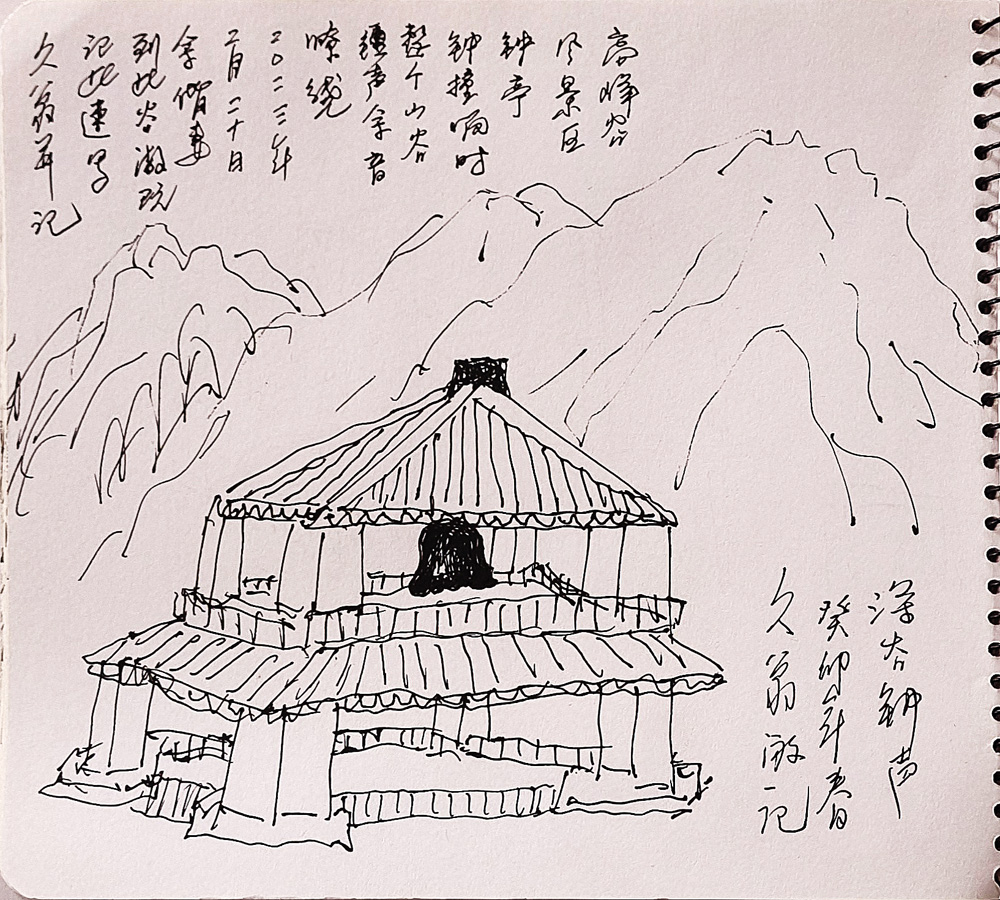 高峰谷
风景区
钟亭
钟撞响时
整个山谷
声余音
嘹绕
二0二三年
二月二十日
余偕妻
到此谷游玩
记此速写
久翁并记
深谷钟声
癸卯年春
久翁记